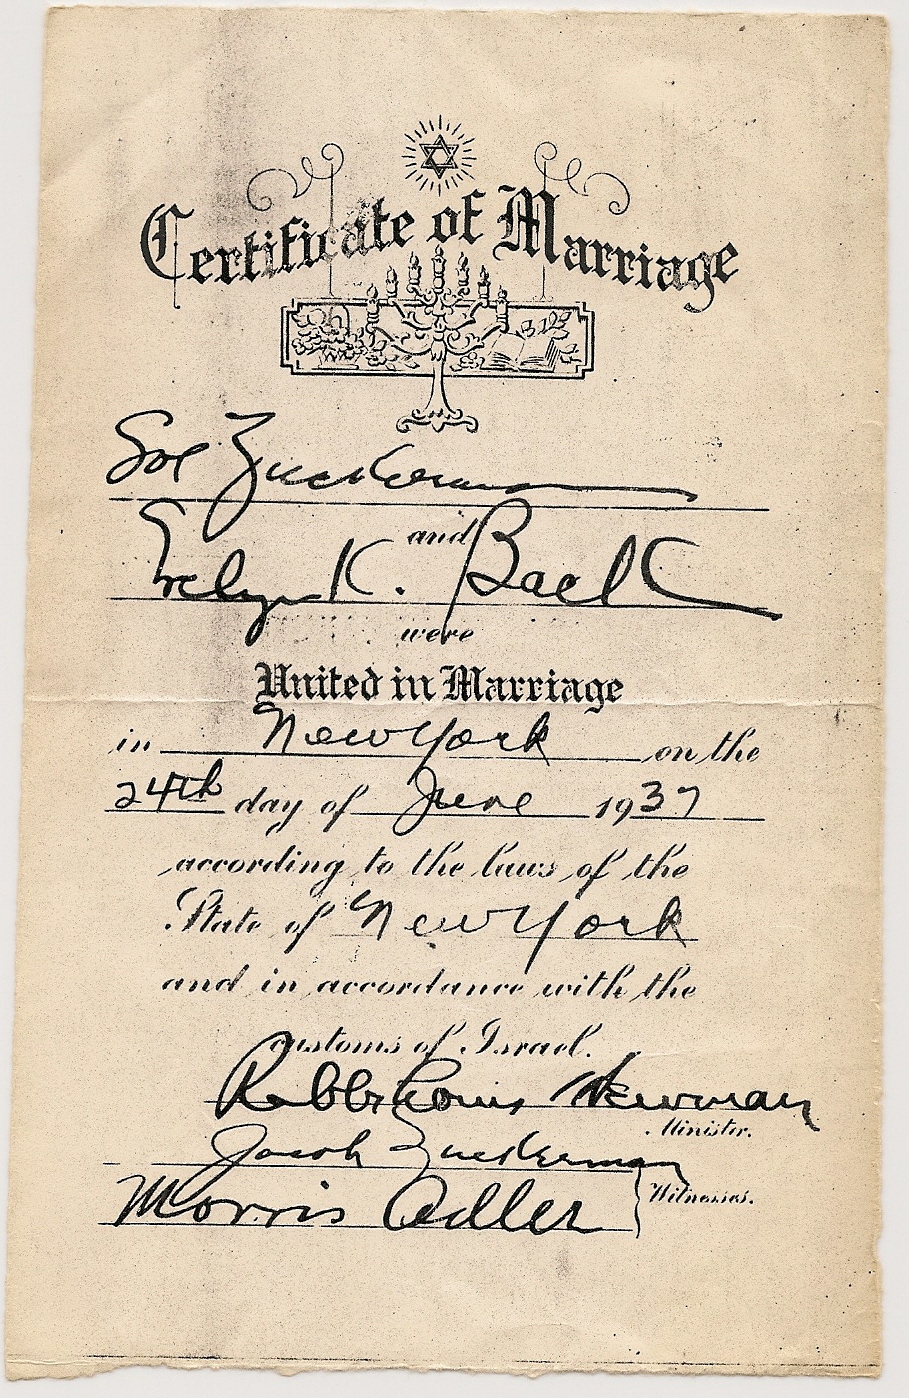 Certificate of Marriage
Sol Zuckerman
and
Evelyn K.
were
United in Marriage
in New York on the
24th day of June 1937
according to the laws of the
State of New York
and in accordance with the
customs of Israel.
Rabbi Louis Newman
Minister.
Jacob Zuckerman
Morris Adler
Witnesses.